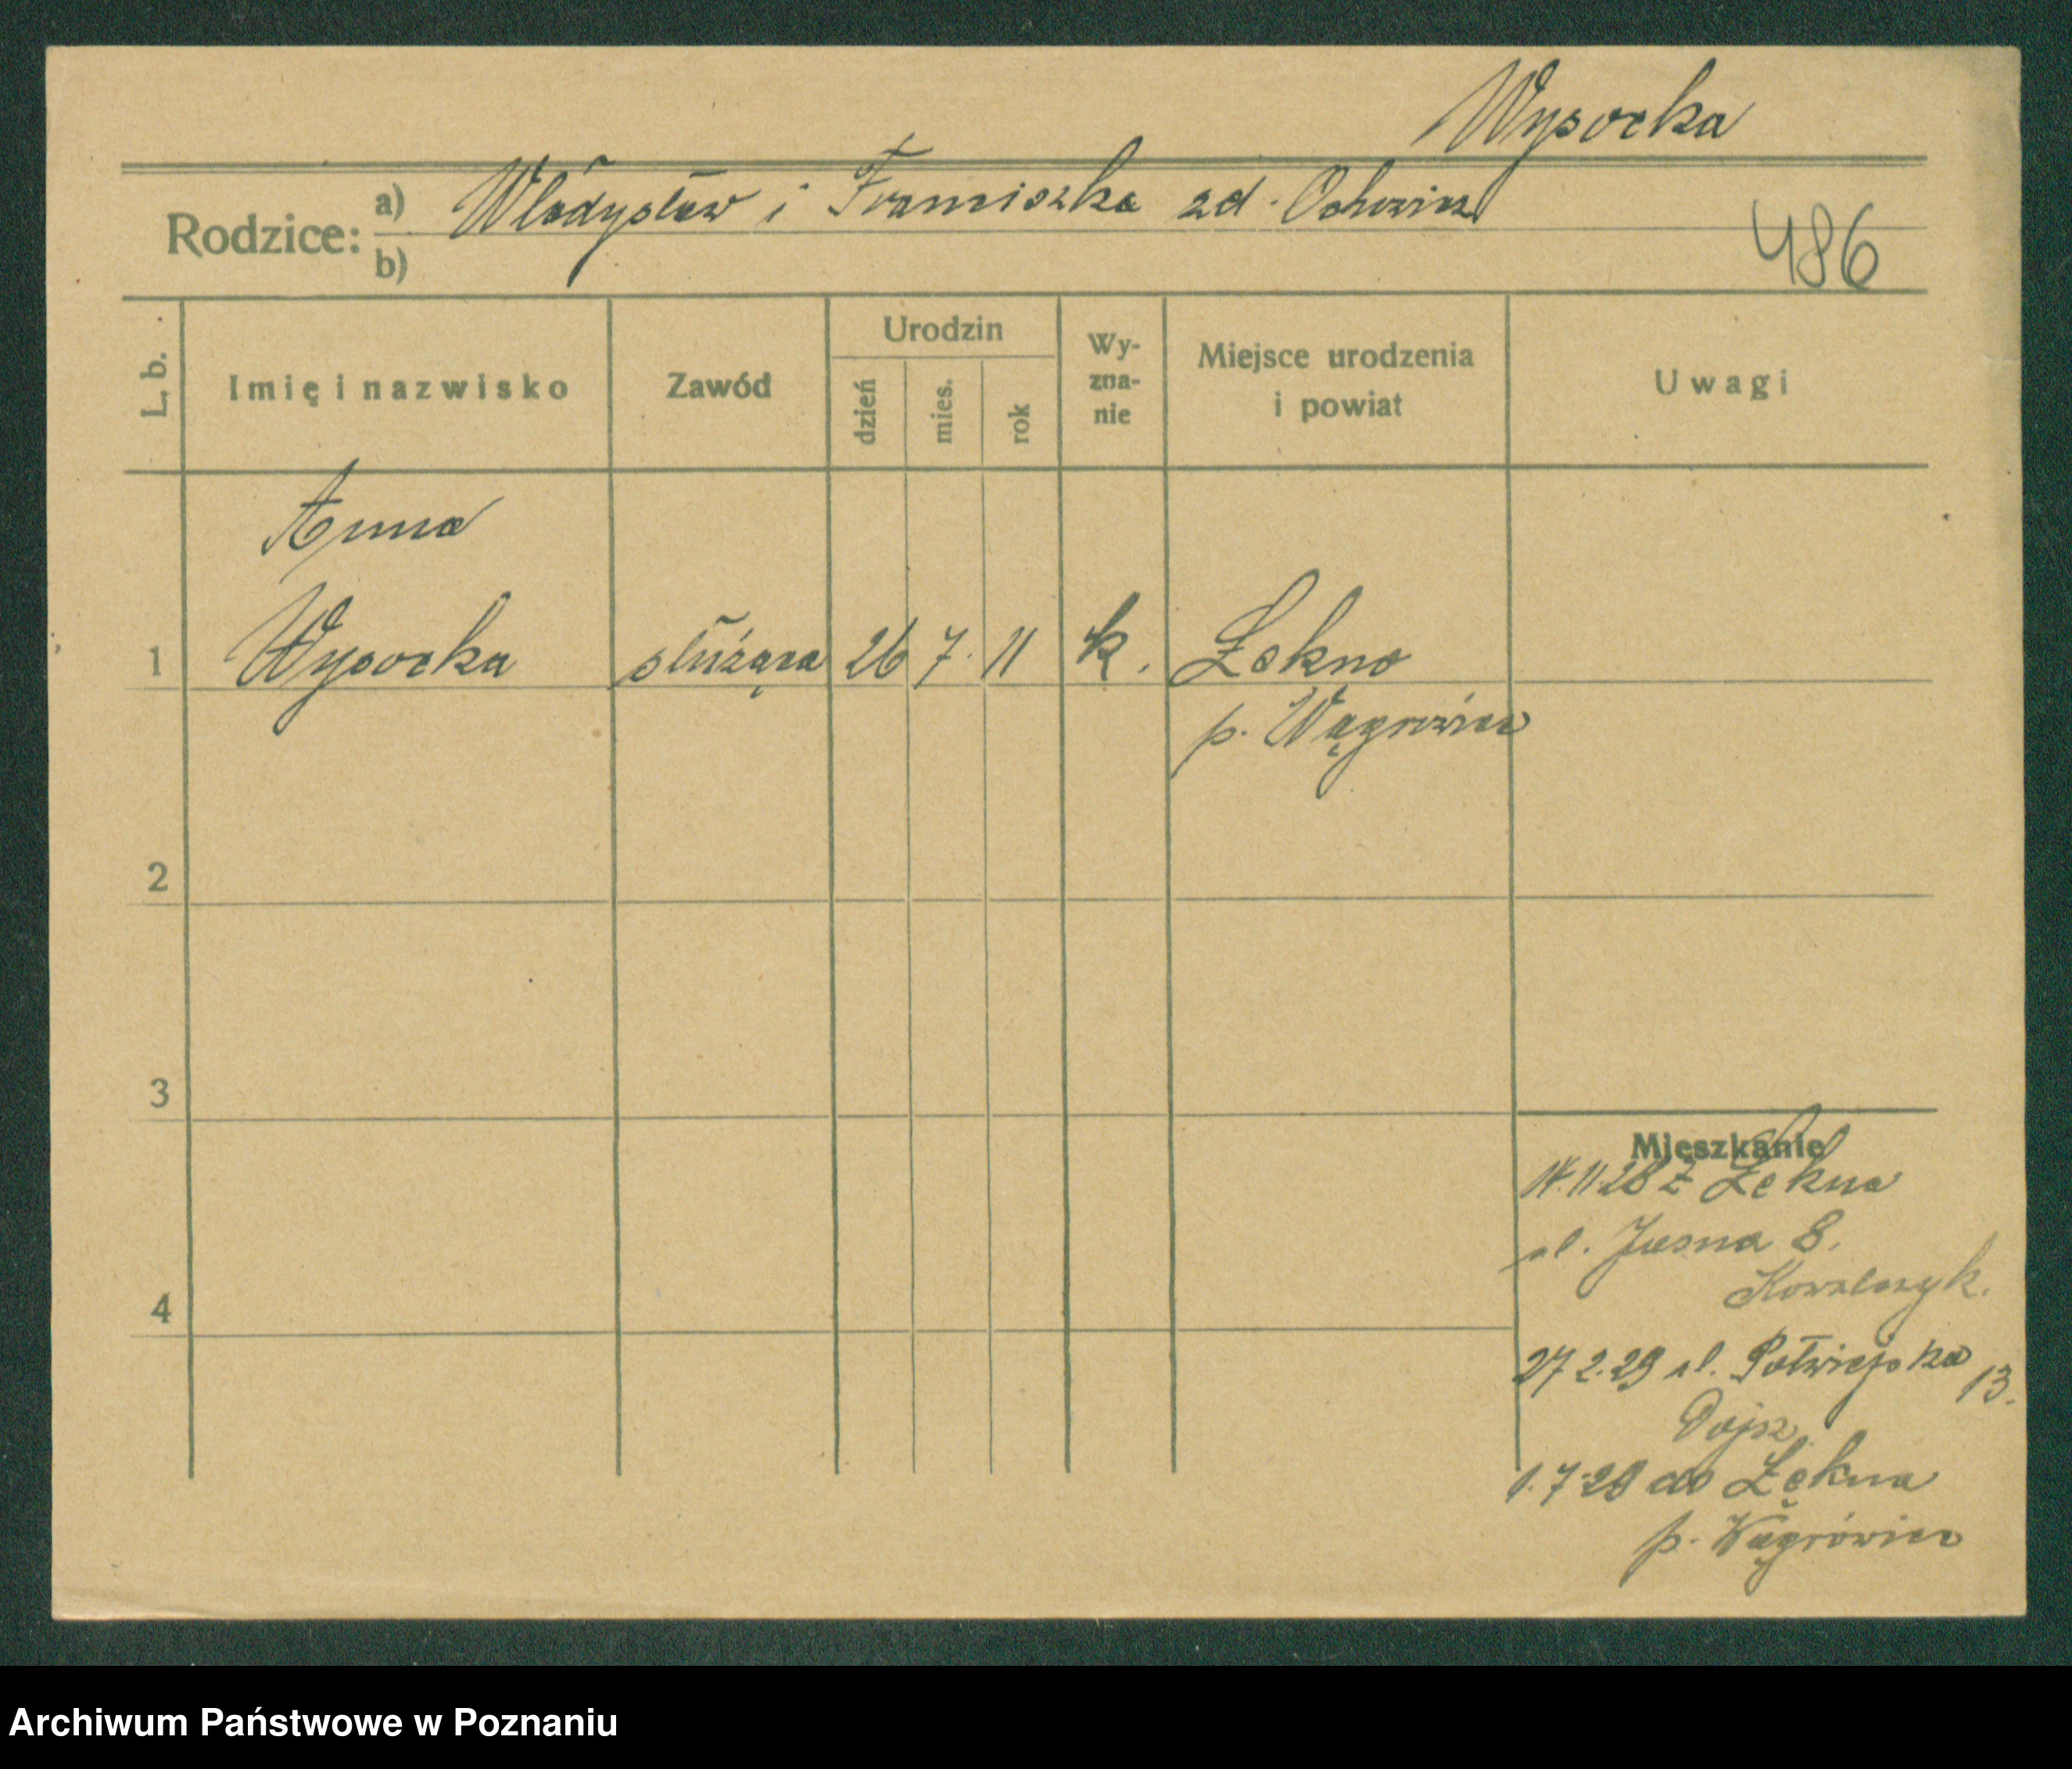 Wysocka
Rodzice: a) Władysław i Franciszka zd.
b)
486
L. b.
Imię i nazwisko
Zawód
Urodzin
dzień
mies.
rok
Wy-
zna-
nie
Miejsce urodzenia
i powiat
Uwagi
Anna
1 Wysocka służąca 26 7. 11 k. Łekno
p. Wągrowiec
2
3
4
Mieszkanie
14.11.28 z Łekna
ul. Jasna 8.
Kowalczyk.
27 2.29 ul. Półwiejska 13.
1.7.29 do Łękna
p. Wągrówiec
Archiwum Państwowe w Poznaniu